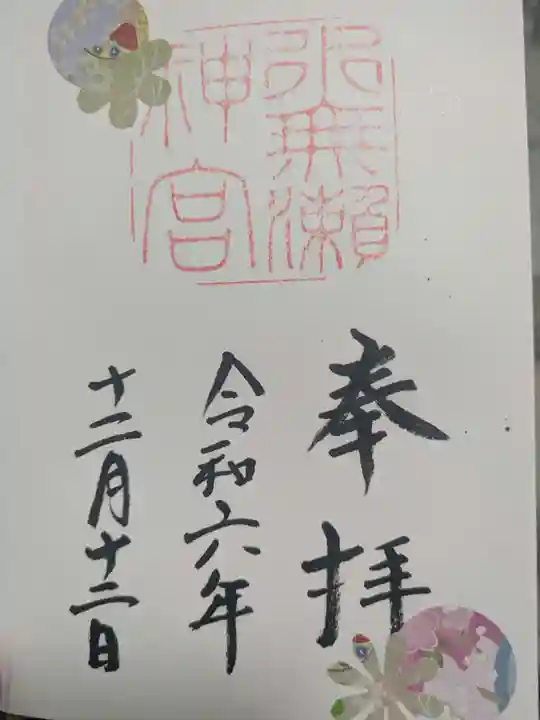 水無瀬
神宮
奉拝
令和六年
十二月十二日